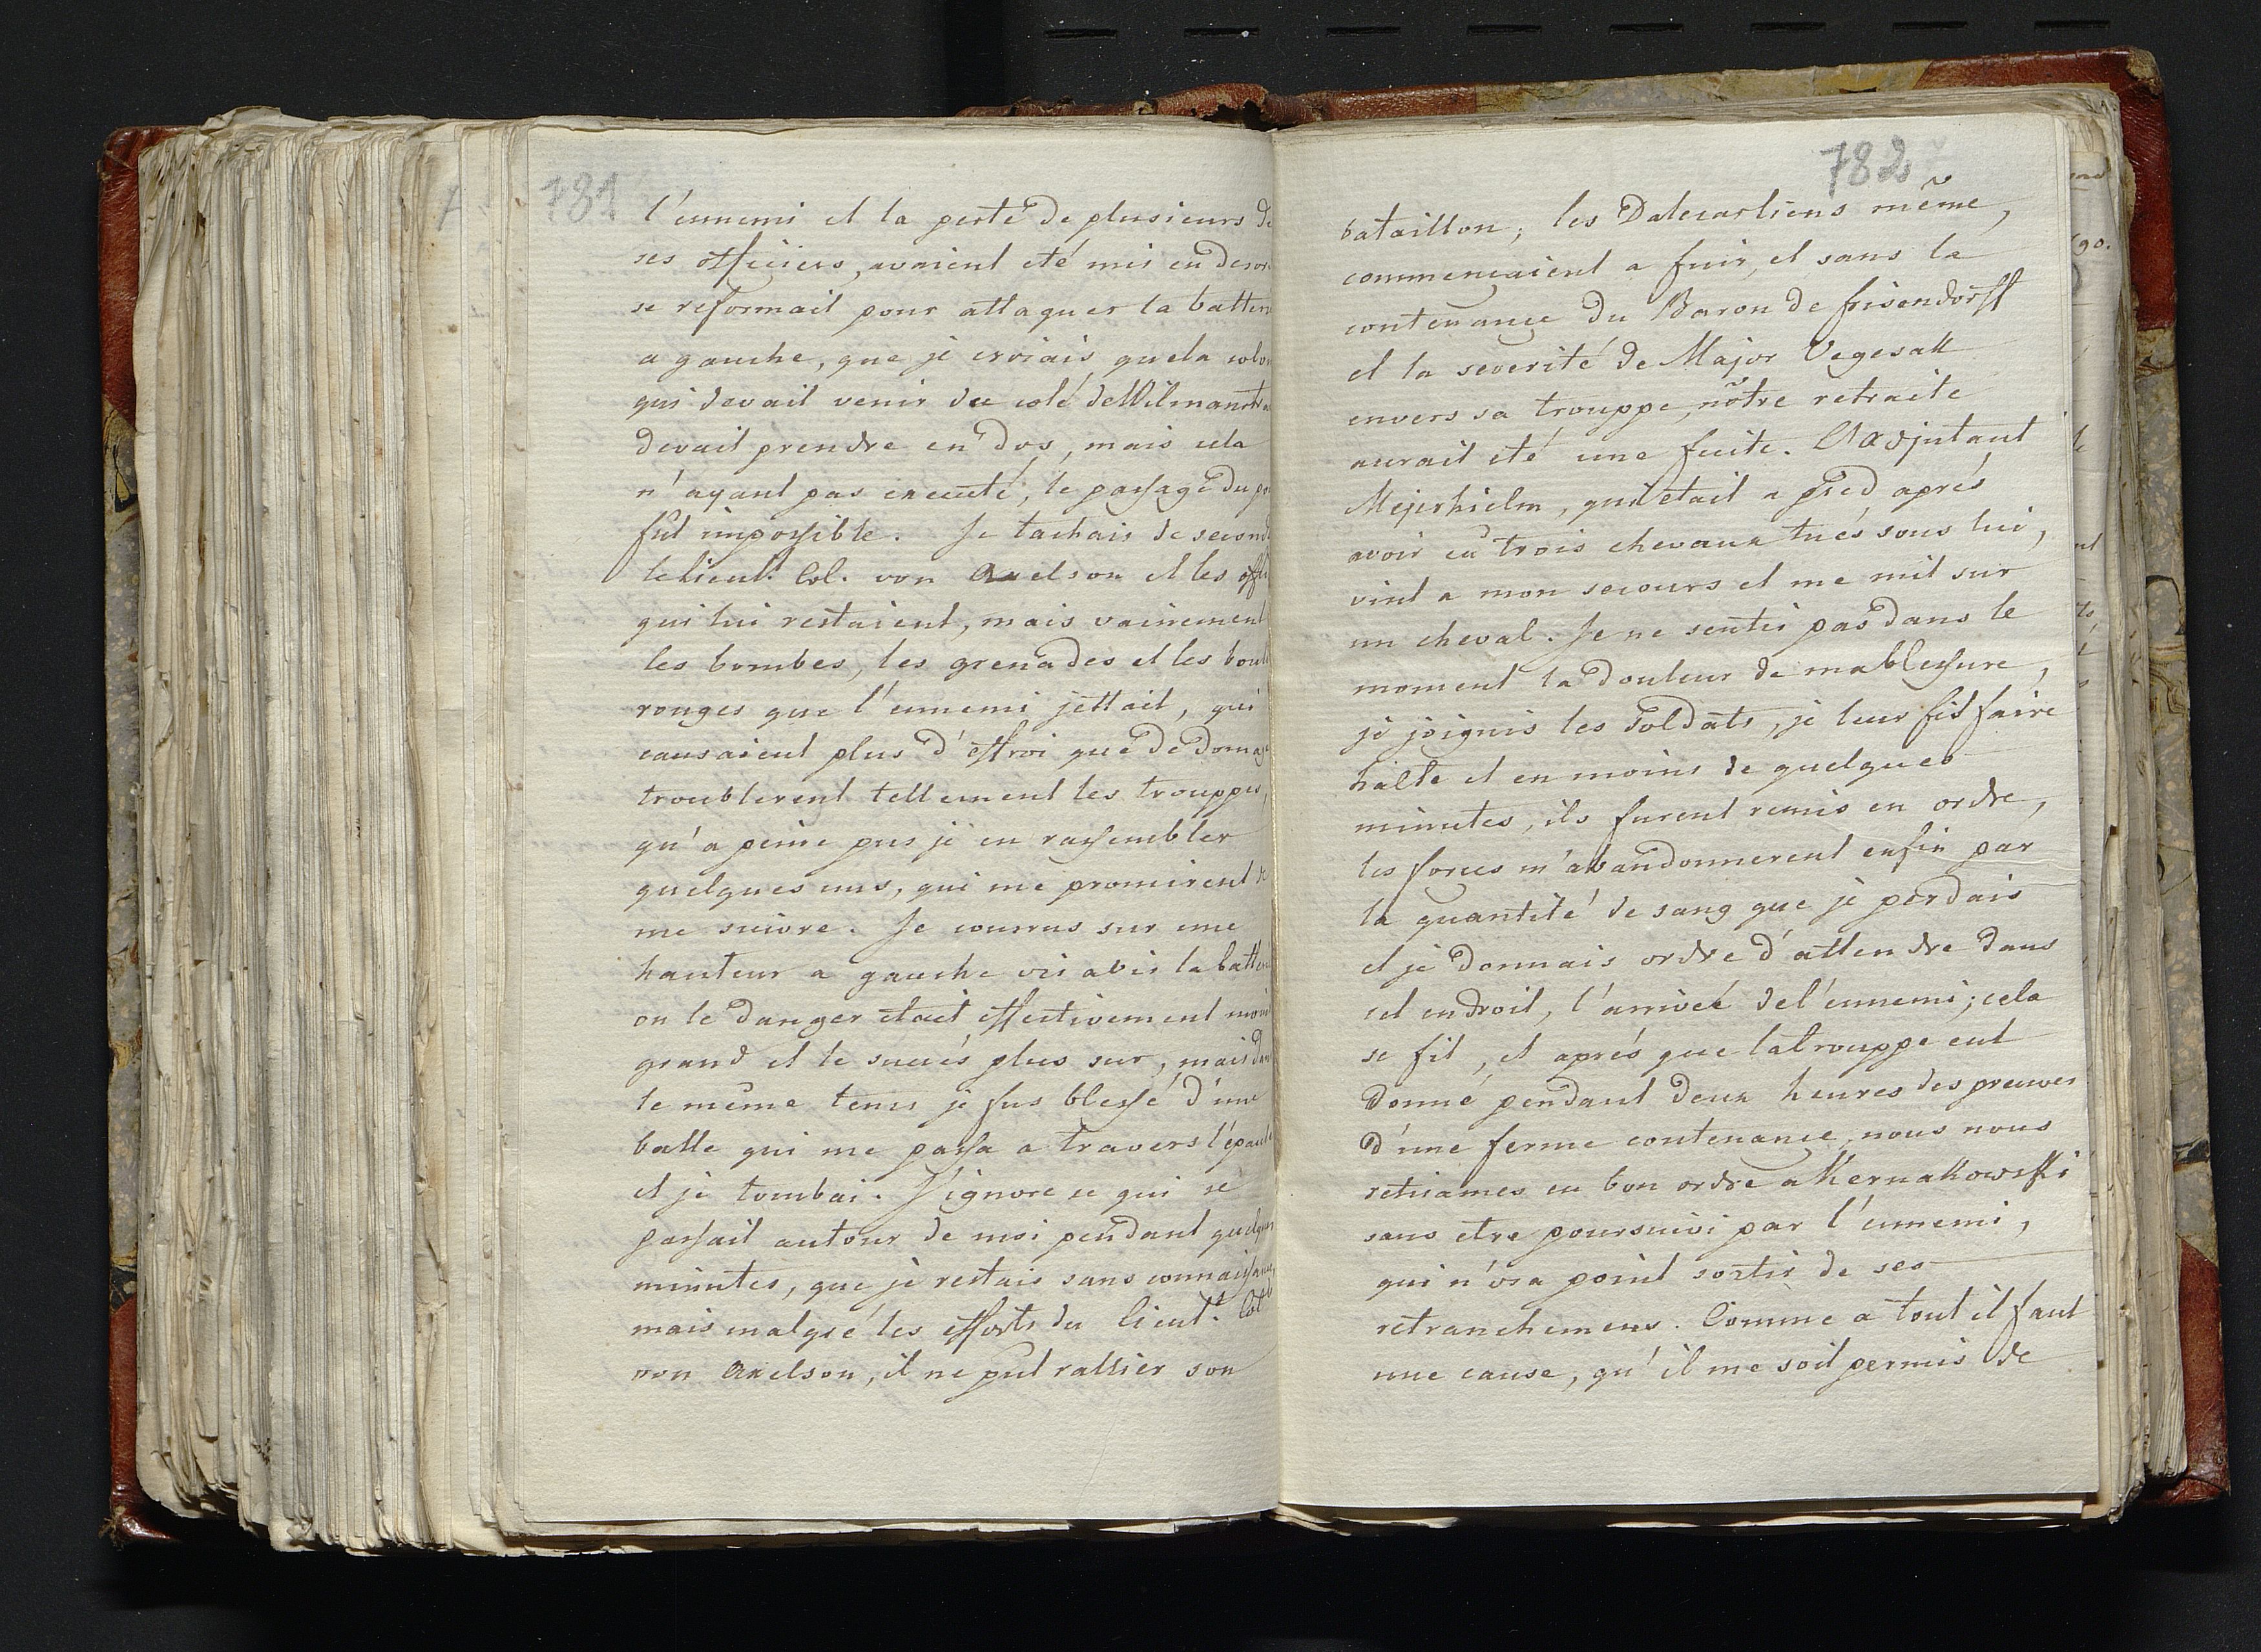 781
l'ennemi et la perte de plusieurs de
ses officiers, avaient eté mis en desor
se reformait pour attaquer la batteri
a gauche, que je croiais, que la colon
qui devait venir du coté de Wilmanstra
devait prendre en dos, mais cela
n'ayant pas executé, le passage du po
fut impossible. Je tachais de second
le Lieut. Col. von Axelson et les offi
qui lui restaient, mais vainement
les bombes, les grenades et les boul
rouges que l'ennemi jettait, qui
causaient plus d'effroi que de domag
troublerent tellement les trouppes,
qu'a peine pus je en rassembler
quelques uns, qui me promirent de
me suivre. Je courrus sur une
hauteur a gauche vis avis la batteri
ou le danger etait effectivement moin
grand et le succés plus sur, mais dans
le même tems je fus blessé d'une
balle qui me passa a travers l'épaule
et je tombai. J'ignore ce qui se
passait autour de moi pendant quelques
minutes, que je restais sans connaissance,
mais malgré les efforts du Lieut. Col
von Axelson, il ne put rallier son
782
bataillon; les Dalecarliens même,
commençaient a fuir, et sans la
contenance du Baron de frisendorff
et la severité de Major Vegesak
envers sa trouppe, nôtre retraite
aurait eté une fuite. L'Adjutant
Mejerhielm, qui etait a pied aprés
avoir eu trois chevaux tués sous lui,
vint a mon secours et me mit sur
un cheval. Je ne sentis pas dans le
moment la douleur de ma blessure,
je joignis les Soldats, je leur fis faire
halte et en moins de quelques
minutes, ils furent remis en ordre,
les forces m'abandonnerent enfin par
la quantité de sang que je perdais
et je donnais ordre d'attendre dans
cet endroit, l'arriveé de l'ennemi; cela
se fit, et aprés que la trouppe eut
donné pendant deux heures des preuves
d'une ferme contenance, nous nous
retirames en bon ordre a Kernakowski
sans etre poursuivi par l'ennemi,
qui n'osa point sortir de ses
retranchemens. Comme a tout il faut
une cause, qu'il me soit permis de